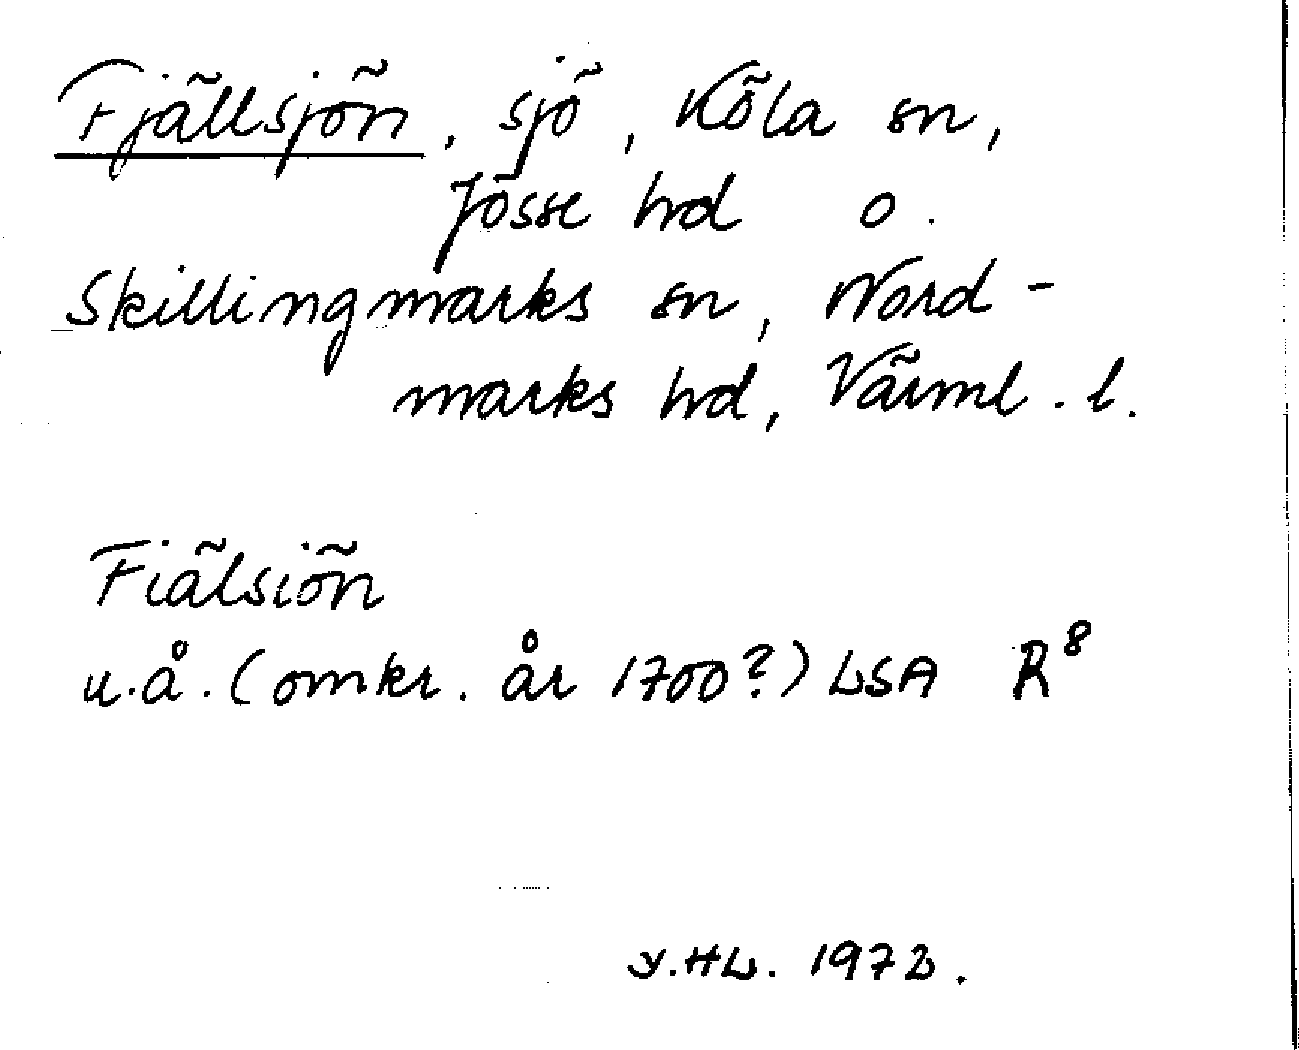 Fjällsjön, sjö, Köla sn,
Jösse hd o.
Skillingmarks sn, Nord-
marks hd, Värml. l.
Fiälsiön
u.å. (omkr. år 1700?) LSA R⁸
Y.HL. 1972.